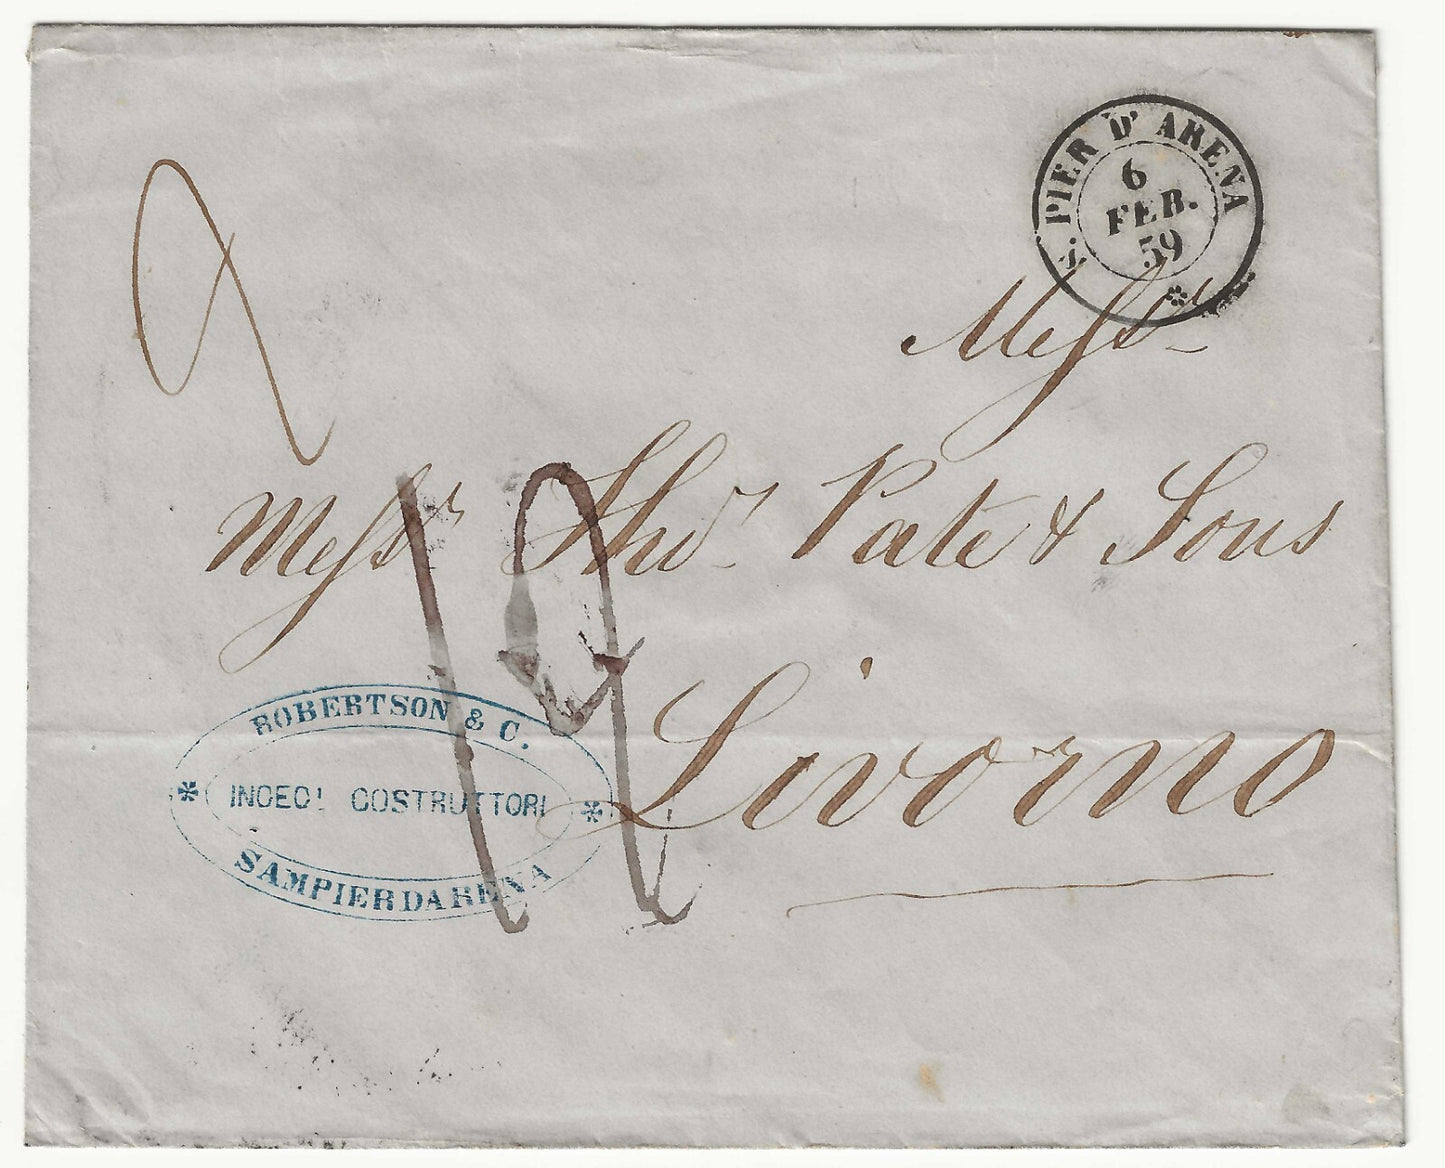 S. PIER D' ARENA
6
FEB.
59
Messrs
Messrs Thos. Pate & Sons
Livorno
ROBERTSON & C.
INGECI COSTRUTTORI
SAMPIERDARENA